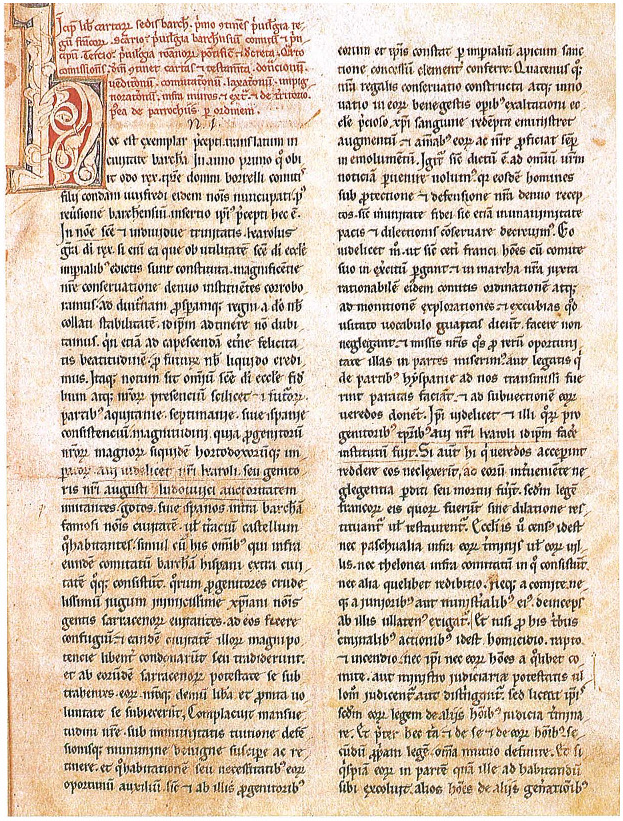 Icip lib cartarꝝ sedis barch. pmo ꝯtinens puilegia re-
gū francoꝝ. Scdario puilegia barchinsiū comitū ⁊ pn
cipū. Tercio puilegia roanoꝝ pontificū ⁊ decreta. Qrto
donū ꝯtinet cartas ⁊ testamta. donationū
uēditionū. comutationū. laxationū. impig
norationū. infra muros ⁊ extᵃ. ⁊ de tritorio.
de parrochiis p ordinem.
N. 1.
Hoc est exemplar pcepti translatum in
ciuitate barcha. In anno primo qͦ obi
it odo rex. tpre domni borrelli comitis
filii condam wifredi eidem nois nuncupati. p
barchensiū. insertio ipi pcepti hec ē.
In noīe scē ⁊ indiuidue trinitatis. karolus
gra di rex. Si eni ea que ob utilitatē scē di eccle
impialibꝰ edictis sunt constituta. magnificētie
nre conseruatione denuo instituentes corrobo
ramus. ad diuturnam prosperamqꝫ regni a do nob
collati stabilitatē. idipm adtinere nō dubi
tamus. qn etiā ad capescenda etne felicita
tis beatitudinē. p futurū nob liquido credi
mus. Itaqꝫ notum sit omiū scē di eccle fid
lium atqꝫ nroꝝ presenciū scilicet ⁊ futuroꝝ
partibꝰ aquitanie. septimanie. siue ispanie
consistenciū magnitudini. quia pgenitorū
nroꝝ magnoꝝ siquidem hortodoxorūqꝫ im
patoꝝ. aui uidelicet nri karoli. seu genito
ris nri augusti ludouuici auctoritatem
imitantes. gotos. siue spanos intra barcha
famosi nois ciuitatē. ul tracium castellum
qͦhabitantes. simul cū his omibꝰ qui infra
eundē comitatū barcha hispani extra ciui
tatē qͦqꝫ consistūt. qrum pgenitores crude
lissimū iugum inimicissime xpiani nois
gentis sarracenoꝝ euitantes. ad eos fecere
confugiū. ⁊ eandē ciuitatē illoꝝ magnipo
tencie libent condonarūt seu tradiderunt.
et ab eorūdē sarracenoꝝ potestate se sub
trahentes. eoꝝ nrīqꝫ demū libera et prompta uo
luntate se subiecerūt. Complacuit mansue
tudini nre sub imunitatis tuicione defe
sionisqꝫ munimine benigne suscipe ac re
tinere. et qͦhabitationē seu necessitatibꝰ eoꝝ
oportunū auxiliū sic ⁊ ab illis pgenitoribꝰ
eorum et ipis constat p impialiū apicum sanc
tione concessū clement conferre. Quatenus qͦ
niā regalis conseruatio constructa atqꝫ inno
uatio in eoꝝ benegestis opibꝰ exaltationi ec
cle pcioso xpi sanguine redēpta emitiret
augmentū ⁊ amabꝰ eoꝝ ac nre pficiat semp
in emolumentū. Igit scē dictū ē. ad omiū urm
noticiā puenire uolumꝰ. qꝛ eosdē homines
sub protectione ⁊ defensione nra denuo recep
tos. sic imunitate fidei sic etiā immunitate
pacis ⁊ dilectionis coseruare decreuimꝰ. Eo
uidelicet m. ut sic ceti franci hoes cū comite
suo in exitū pgant. ⁊ in marcha nra iuxta
rationabilē eidem comitis ordinationē atqꝫ
admonitionē explorationes ⁊ excubias qd
usitato uocabulo guaytas dicūt. facere non
neglegant. ⁊ missis nris qͦs p rerū oportuni
tate illas in partes miserimꝰ. aut legatis q
de partibꝰ hyspanie ad nos transmissi fue
rint paratas faciāt. ⁊ ad subuectionē eoꝝ
ueredos donēt. Ipi uidelicet ⁊ illi qͦꝝ pro
genitoribꝰ tpribꝰ aui nri karoli idipm face
institutū fuit. Si aut hi q ueredos accepint
reddere eos neclexerit. ac eorū intueniente ne
glegentia pditi seu mortui fūit. scdm legē
francoꝝ eis quoꝝ fuerūt sine dilatione res
tituant. ul restaurent. Eccle is ul censꝰ. idest
nec pascualia infra eoꝝ tminis ul eoꝝ uil
lis. nec thelonea infra comitatū in qͦ consistūt.
nec alia quelibet redibitio. neqꝫ a comite. ne
qꝫ a iuniorib. aut ministialibꝰ eiꝰ. deinceps
ab illis ullatenꝰ exigat. Et nisi p his tribꝰ
criminalibꝰ actionibꝰ. idest homicidio. rapto.
⁊ incendio. nec ipi nec eoꝝ hoes a qͦlibet co
mite. aut ministro iudiciaria potestatis ul
lom iudicent. aut distringant. sed liceat ipi
scdm eoꝝ legem de aliis hoibꝰ iudicia tmina
re. Et pter hec tia ⁊ de se ⁊ de eoꝝ hoibꝰ se
cūdū ppam legē. omia mutuo definire. Et si
qspia eoꝝ in partē quā ille ad habitandū
sibi excoluit. alios hoes de aliis genationibꝰ